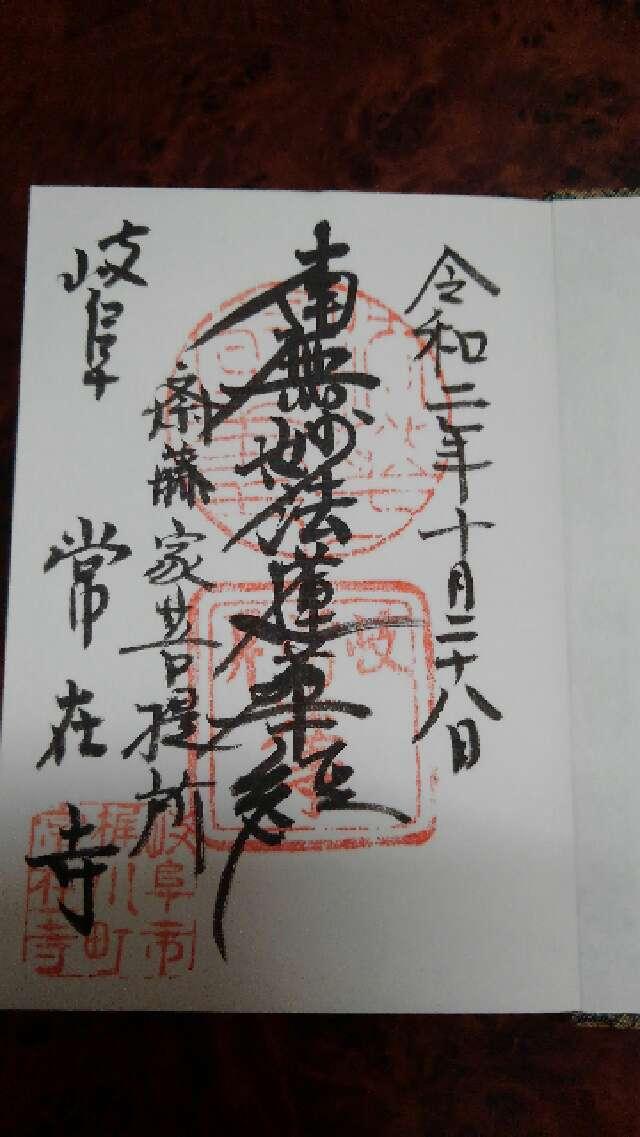 令和二年十月二十八日
南無妙法蓮華経
斎藤家菩提所
岐阜 常在寺
岐阜市
梶川町
常在寺